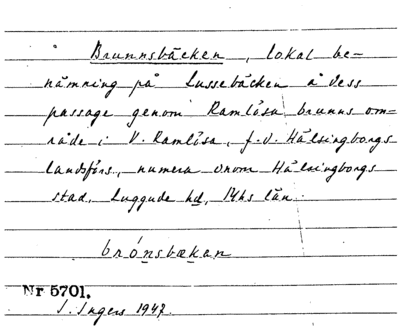 Brunnsbäcken, lokal be-
nämning på Lussebäcken å dess
passage genom Ramlösa brunns om-
råde i V. Ramlösa, f.d. Hälsingborgs
landsförs., numera inom Hälsingborgs
stad. Luggude hd, Mhs län.
brónsbækan
Nr 5701.
I. Ingers 1947.